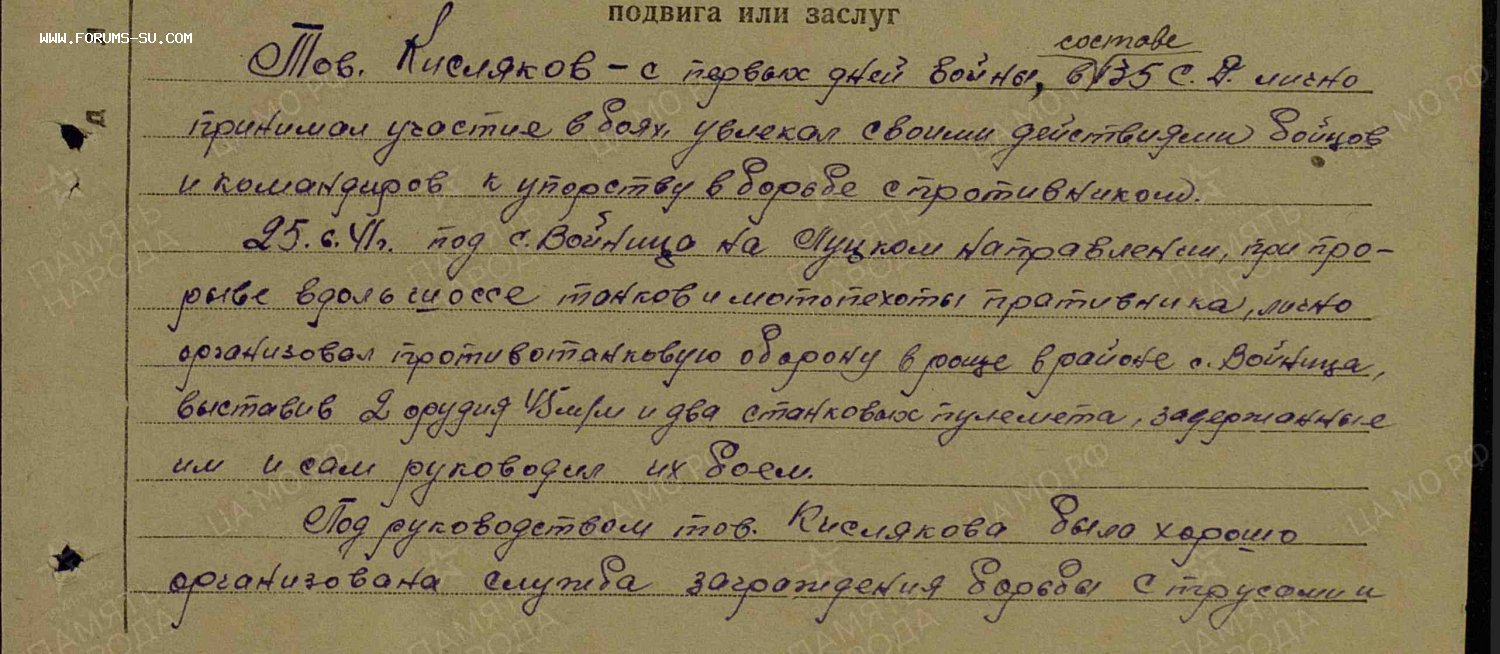 подвига или заслуг
WWW.FORUMS-SU.COM
составе
Тов. Кисляков – с первых дней войны, в 135 С.Д. лично
принимал участие в боях, увлекал своими действиями бойцов
и командиров к упорству в борьбе с противником.
25.6.41г. под с. Войница на Луцком направлении, при про-
рыве вдоль шоссе танков и мотопехоты пративника, лично
организовал противотанковую оборону в роще в районе с. Войница,
выставив 2 орудия 45 м/м и два станковых пулемета, задержанные
им и сам руководил их боем.
Под руководством тов. Кислякова была хорошо
организована служба заграждения борьбы с трусами и
ПАМЯТЬ НАРОДА
ЦАМО.РФ